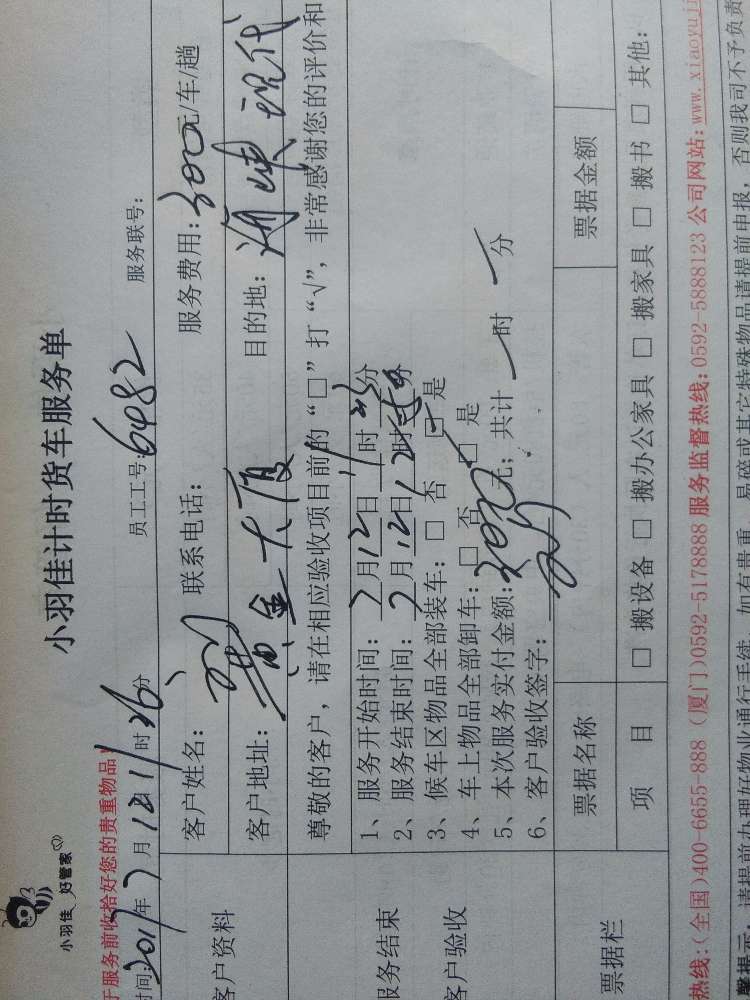 小羽佳 好管家
小羽佳计时货车服务单
于服务前收拾好您的贵重物品
时间:2017年7月12日11时26分 员工工号:6482 服务联号:
客户资料
客户姓名: 刘 联系电话: 服务费用:300元/车/趟
客户地址: 黄金大厦 目的地: 海峡现代
尊敬的客户,请在相应验收项目前的“□”打“√”,非常感谢您的评价和
服务结束
客户验收
1、服务开始时间: 7月12日11时 分
2、服务结束时间: 7月12日12时 分
3、候车区物品全部装车: □ 否 □ 是
4、车上物品全部卸车: □ 否 □ 是
5、本次服务实付金额: 元; 共计 时 分
6、客户验收签字:
票据栏
票据名称 票据金额
项 目 □ 搬设备 □ 搬办公家具 □ 搬家具 □ 搬书 □ 其他:
热线:(全国)400-6655-888 (厦门)0592-5178888 服务监督热线:0592-5888123 公司网站:www.xiaoyuji
馨提示: 请提前办理好物业通行手续, 如有贵重、易碎或其它特殊物品请提前申报, 否则我司不予负责